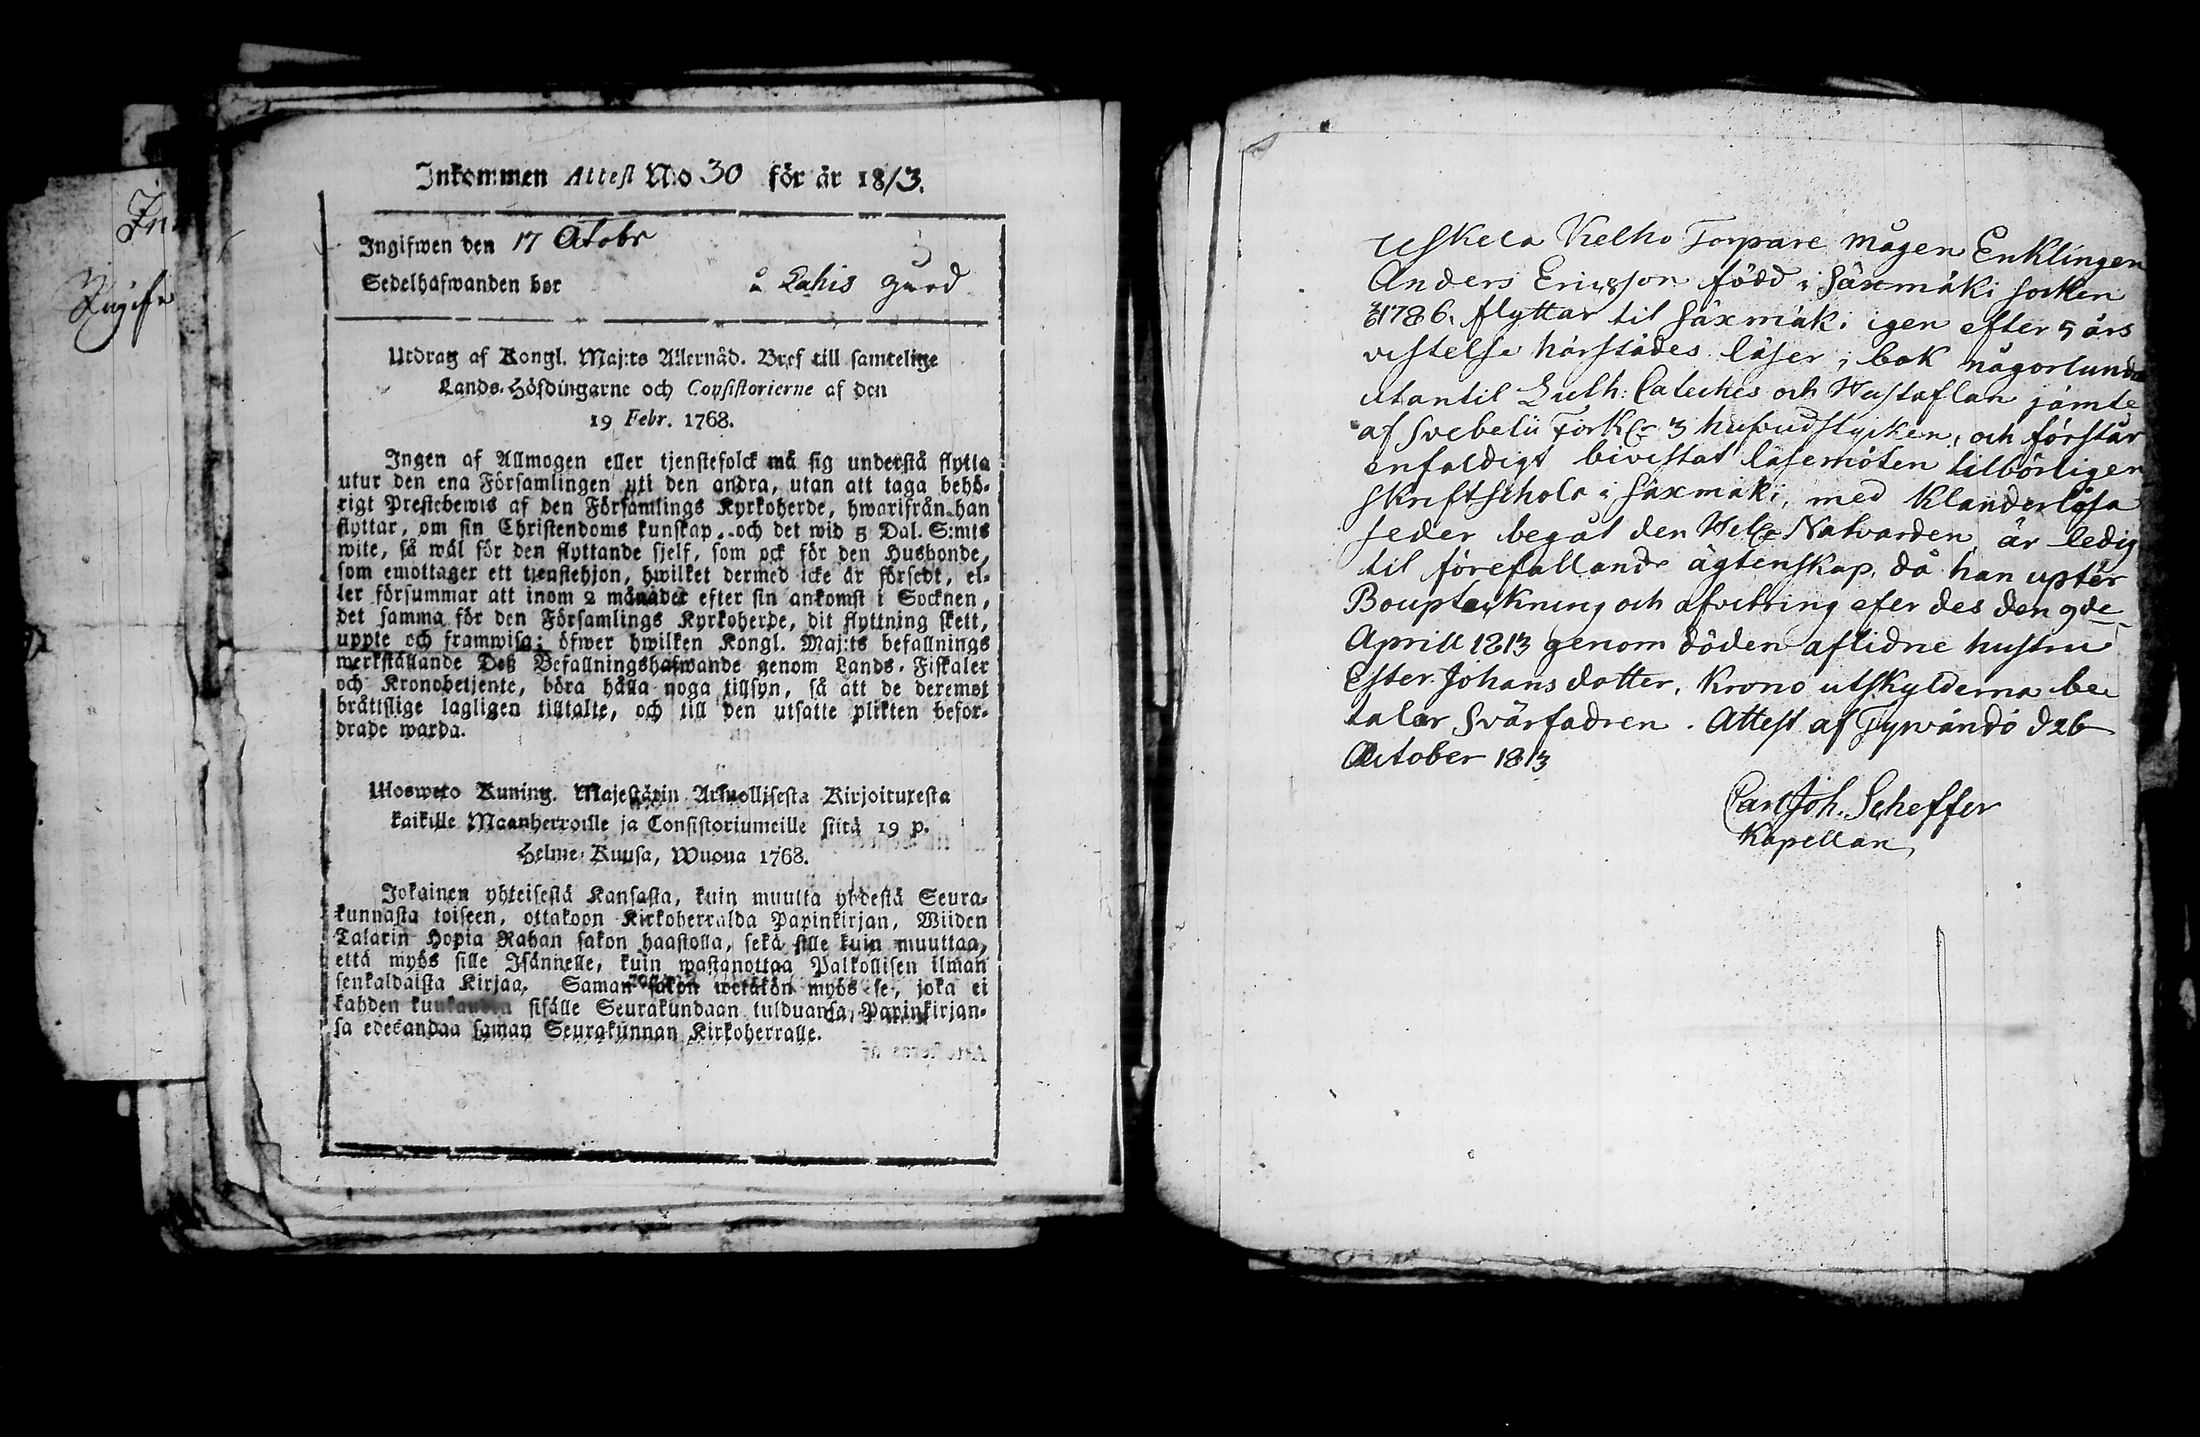 In
Ingifw
Inkommen Attest N:o 30 för år 1813.
Ingifwen den 17 Octobr
Sedelhafwanden bor å Lahis gård
Utdrag af Kongl. Maj:ts Allernåd. Bref till samtelige
Lands-Höfdingarne och Consistorierne af den
19 Febr. 1768.
Ingen af Allmogen eller tjenstefolck må sig understå flytta
utur den ena Församlingen uti den andra, utan att taga behö-
rigt Prestebewis af den Församlings Kyrkoherde, hwarifrån han
flyttar, om sin Christendoms kunskap, och det wid 5 Dal. S:mts
wite, så wäl för den flyttande sjelf, som ock för den Husbonde,
som emottager ett tjenstehjon, hwilket dermed icke är försedt, el-
ler försummar att inom 2 månader efter sin ankomst i Socknen,
det samma för den Församlings Kyrkoherde, dit flyttning skett,
uppte och framwisa; öfwer hwilken Kongl. Maj:ts befallnings
werkställande Deß Befallningshafwande genom Lands-Fiskaler
och Kronobetjente, böra hålla noga tillsyn, så att de deremot
bråttslige lagligen tilltalte, och till den utsatte plikten befor-
drade warda.
Ulosweto Kuning. Majestätin Armollisesta Kirjoituxesta
kaikille Maanherroille ja Consistoriumeille siitä 19 p.
Helme-Kuusa, Wuona 1768.
Jokainen yhteisestä Kansasta, kuin muutta yhdestä Seura-
kunnasta toiseen, ottakoon Kirkoherralda Papinkirjan, Wiiden
Talarin Hopia Rahan sakon haastolla, sekä sille kuin muuttaa,
että myös sille Isännelle, kuin wastanottaa Palkollisen ilman
senkaldaista Kirjaa. Saman sakon wetäkön myös se, joka ei
kahden kuukauden sisälle Seurakundaan tulduansa, Papinkirjan-
sa edesandaa saman Seurakunnan Kirkoherralle.
Uskela Kielho Torpare mågen Enklingen
Anders Ericsson född i Säxmäki socken
1786. flyttar til Säxmäki igen efter 5 års
vistelse härstädes läser i bok någorlunda
utantil Luth: Cateches och Hustaflan jämte
af Svebelii Förkl:r 3 hufvudstycken, och förstår
enfaldigt bivistat läsemöten tilbörligen
Skriftschola i Säxmäki, med klanderlösa
seder begåt den Hel:e Natvarden är ledig
til förefallande ägtenskap, då han uptér
Boupteckning och afvitring efer des den 9de
Aprill 1813 genom döden aflidne hustru
Ester Johans dotter, Krono utskylderna be
talar Svärfadren. Attest af Tyrvändö d 26
October 1813
Carl Joh. Scheffer
Kapellan